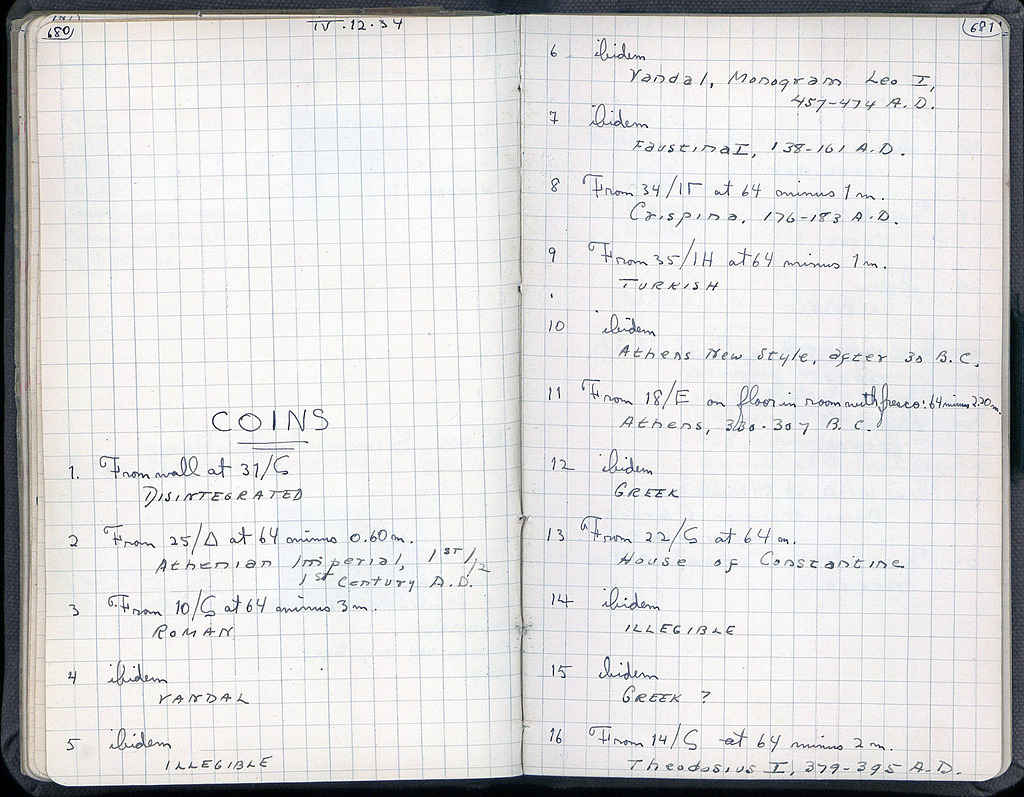 680
IV.12.34
COINS
1. From wall at 31/Ϛ
DISINTEGRATED
2 From 25/Δ at 64 minus 0.60 m.
Athenian Imperial, 1ST 1/2
1st Century A.D.
3 From 10/Ϛ at 64 minus 3 m.
ROMAN
4 ibidem
VANDAL
5 ibidem
ILLEGIBLE
681
6 ibidem
Vandal, Monogram Leo I,
457-474 A.D.
7 ibidem
Faustina I, 138-161 A.D.
8 From 34/ΙΓ at 64 minus 1 m.
Crispina, 176-183 A.D.
9 From 35/ΙΗ at 64 minus 1 m.
TURKISH
10 ibidem
Athens New Style, after 30 B.C.
11 From 18/E on floor in room with fresco: 64 minus 2.20 m.
Athens, 330-307 B.C.
12 ibidem
GREEK
13 From 22/Ϛ at 64 m.
House of Constantine
14 ibidem
ILLEGIBLE
15 ibidem
GREEK ?
16 From 14/Ϛ at 64 minus 2 m.
Theodosius I, 379-395 A.D.